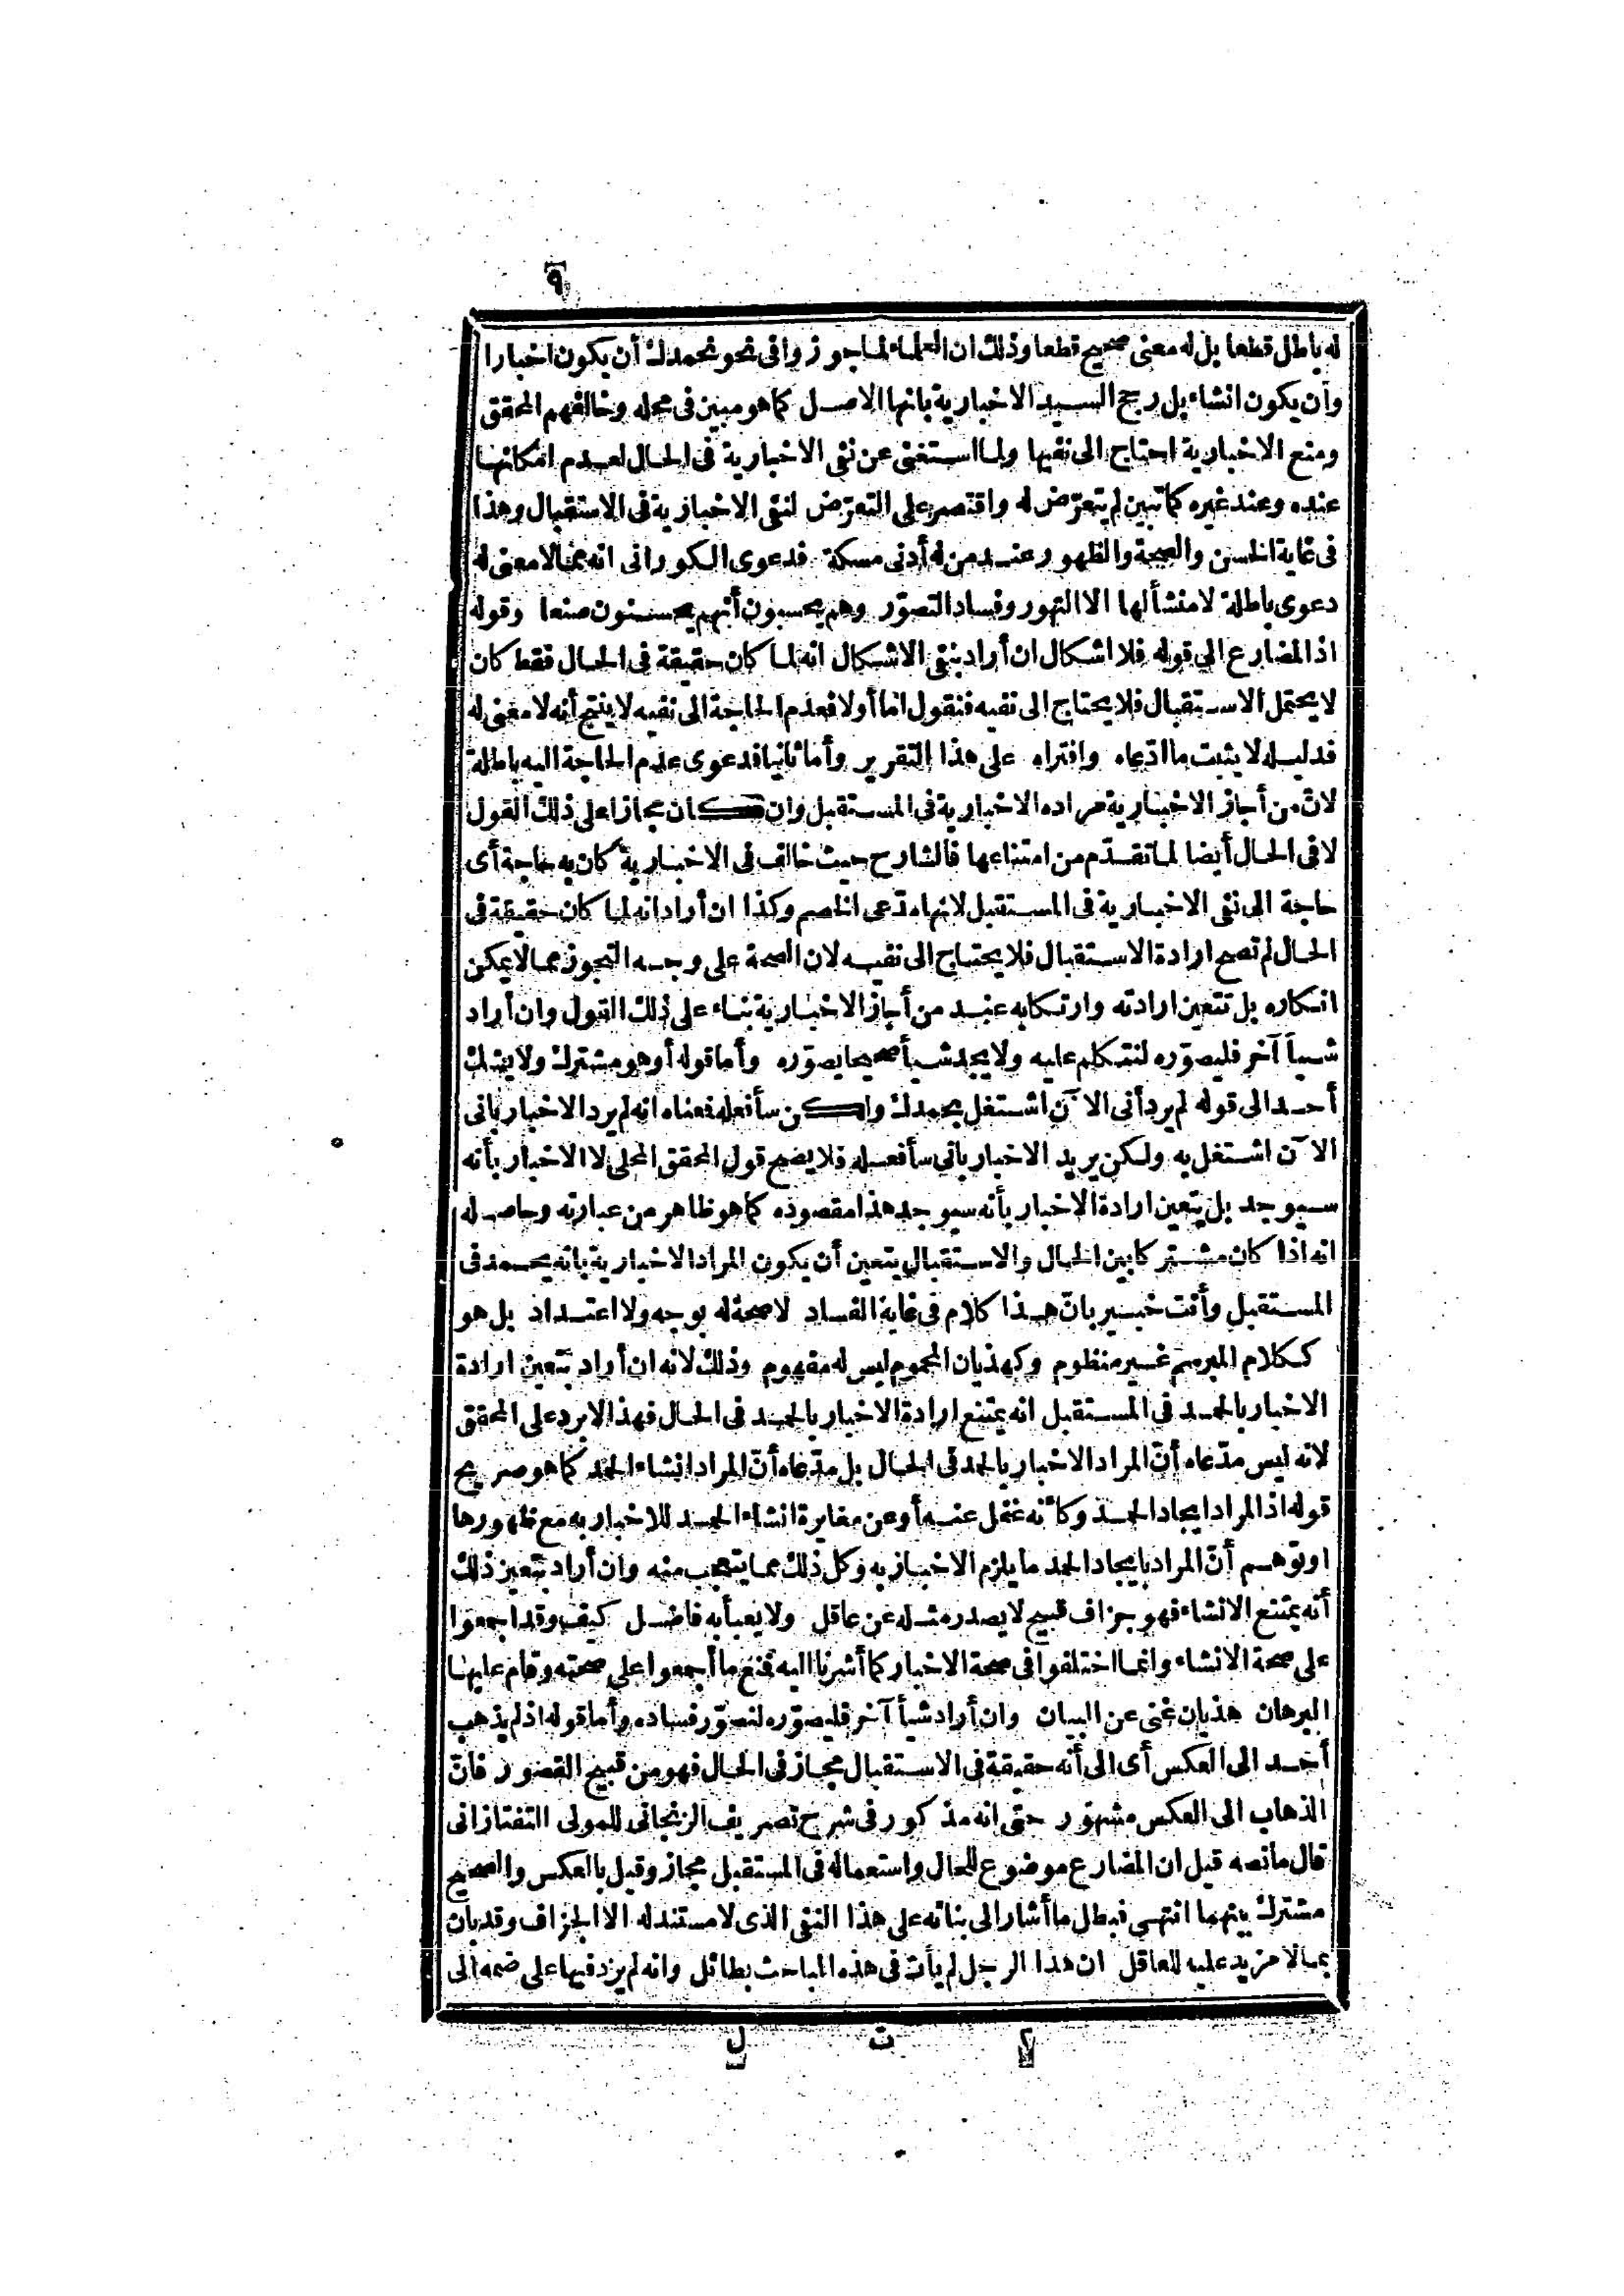 ٩
له باطل قطعا بل له معنى صحيح قطعا وذلك ان العلماء لما جوزوا فى نحو نحمدك أن يكون اخبارا
وأن يكون انشاء بل رجح السيد الاخبارية بانها الاصل كما هو مبين فى محله وخالفهم المحقق
ومنع الاخبارية احتاج الى نفيها ولما استغنى عن نفى الاخبارية فى الحال لعدم امكانها
عنده وعند غيره كما تبين لم يتعرّض له واقتصر على التعرّض لنفى الاخبارية فى الاستقبال وهذا
فى غاية الحسن والصحة والظهور عند من له أدنى مسكة فدعوى الكورانى انه مما لا معنى له
دعوى باطلة لا منشأ لها الا التهور وفساد التصوّر وهم يحسبون أنهم يحسنون صنعا وقوله
اذ المضارع الى قوله فلا اشكال ان أراد بنفى الاشكال انه لما كان حقيقة فى الحال فقط كان
لا يحتمل الاستقبال فلا يحتاج الى نفيه فنقول اما أولا فعدم الحاجة الى نفيه لا ينتج أنه لا معنى له
فدليله لا يثبت ما ادّعاه وافتراه على هذا التقرير وأما ثانيا فدعوى عدم الحاجة اليه باطلة
لانّ من أجاز الاخبارية مراده الاخبارية فى المستقبل وان كان مجازا على ذلك القول
لا فى الحال أيضا لما تقدّم من امتناعها فالشارح حيث خالف فى الاخبارية كان به حاجة أى
حاجة الى نفى الاخبارية فى المستقبل لانها مدّعى الخصم وكذا ان أراد انه لما كان حقيقة فى
الحال لم تصح ارادة الاستقبال فلا يحتاج الى نفيه لان الصحة على وجه التجوز مما لا يمكن
انكاره بل تتعين ارادته وارتكابه عند من أجاز الاخبارية بناء على ذلك القول وان أراد
شيأ آخر فليصوّره لنتكلم عليه ولا يجد شيأ صحيحا يصوّره وأما قوله أو هو مشترك ولا يشك
أحد الى قوله لم يرد أنى الآن اشتغل بحمدك ولكن سأفعله فمعناه انه لم يرد الاخبار بانى
الآن اشتغل به ولكن يريد الاخبار بانى سأفعله فلا يصح قول المحقق المحلى لا الاخبار بأنه
سيوجد بل يتعين ارادة الاخبار بأنه سيوجد هذا مقصوده كما هو ظاهر من عبارته وحاصله
انه اذا كان مشتركا بين الحال والاستقبال يتعين أن يكون المراد الاخبارية بانه يحمد فى
المستقبل وأنت خبير بانّ هذا كلام فى غاية الفساد لا صحة له بوجه ولا اعتداد بل هو
ككلام المبرسم غير منظوم وكهذيان المحموم ليس له مفهوم وذلك لانه ان أراد بتعين ارادة
الاخبار بالحمد فى المستقبل انه يمتنع ارادة الاخبار بالحمد فى الحال فهذا لا يرد على المحقق
لانه ليس مدّعاه أنّ المراد الاخبار بالحمد فى الحال بل مدّعاه أنّ المراد انشاء الحمد كما هو صريح
قوله اذ المراد ايجاد الحمد وكأنه غفل عنه أو عن مغايرة انشاء الحمد للاخبار به مع ظهورها
او توهم أنّ المراد بايجاد الحمد ما يلزم الاخبار به وكل ذلك مما يتعجب منه وان أراد بتعين ذلك
أنه يمتنع الانشاء فهو جزاف قبيح لا يصدر مثله عن عاقل ولا يعبأ به فاضل كيف وقد اجمعوا
على صحة الانشاء وانما اختلفوا فى صحة الاخبار كما أشرنا اليه فمنع ما أجمعوا على صحته وقام عليها
البرهان هذيان غنى عن البيان وان أراد شيأ آخر فليصوّره لنصوّر فساده وأما قوله اذ لم يذهب
أحد الى العكس أى الى أنه حقيقة فى الاستقبال مجاز فى الحال فهو من قبيح القصور فانّ
الذهاب الى العكس مشهور حتى انه مذكور فى شرح تصريف الزنجانى للمولى التفتازانى
قال ما نصه قيل ان المضارع موضوع للحال واستعماله فى المستقبل مجاز وقيل بالعكس والصحيح
مشترك بينهما انتهى فبطل ما أشار الى بنائه على هذا النفى الذى لا مستند له الا الجزاف وقد بان
بما لا مزيد عليه للعاقل ان هذا الرجل لم يأت فى هذه المباحث بطائل وانه لم يزد فيها على ضمه الى
ت ل